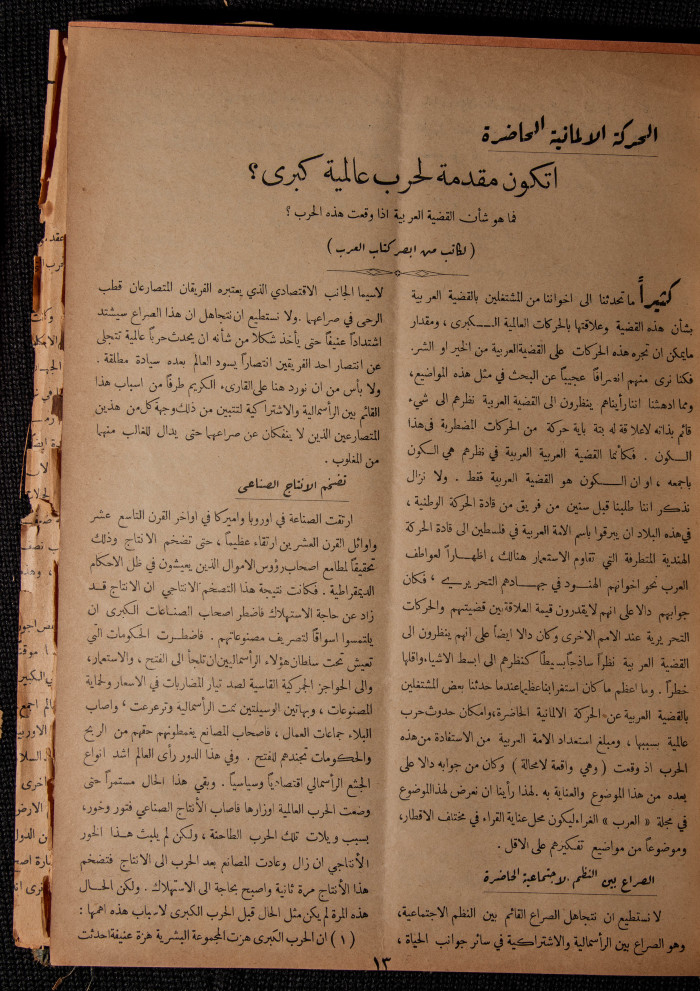 الحركة الالمانية الحاضرة
اتكون مقدمة لحرب عالمية كبرى؟
فما هو شأن القضية العربية اذا وقعت هذه الحرب ؟
( لكاتب من ابصر كتاب العرب )
كثيراً ما تحدثنا الى اخواننا من المشتغلين بالقضية العربية
بشأن هذه القضية وعلاقتها بالحركات العالمية الكبرى ، ومقدار
مايمكن ان تجره هذه الحركات على القضية العربية من الخير او الشر.
فكنا نرى منهم انصرافاً عجيباً عن البحث في مثل هذه المواضيع،
ومما ادهشنا اننا رأيناهم ينظرون الى القضية العربية نظرهم الى شيء
قائم بذاته لاعلاقة له بتة باية حركة من الحركات المضطربة في هذا
الكون . فكأنما القضية العربية العربية في نظرهم هي الكون
باجمعه ، او ان الكون هو القضية العربية فقط . ولا نزال
نذكر اننا طلبنا قبل سنتين من فريق من قادة الحركة الوطنية ،
في هذه البلاد ان يبرقوا باسم الامة العربية في فلسطين الى قادة الحركة
الهندية المتطرفة التي تقاوم الاستعمار هنالك ، اظهاراً لعواطف
العرب نحو اخوانهم الهنود في جهادهم التحريري ، فكان
جوابهم دالا على انهم لايقدرون قيمة العلاقة بين قضيتهم والحركات
التحريرية عند الامم الاخرى وكان دالا ايضاً على انهم ينظرون الى
القضية العربية نظراً ساذجاً بسيطاً كنظرهم الى ابسط الاشياء واقلها
خطراً . وما اعظم ما كان استغرابنا عظيماً عندما حدثنا بعض المشتغلين
بالقضية العربية عن الحركة الالمانية الحاضرة، وامكان حدوث حرب
عالمية بسببها ، ومبلغ استعداد الامة العربية من الاستفادة من هذه
الحرب اذ وقعت ( وهي واقعة لامحالة ) وكان من جوابه دالا على
بعده من هذا الموضوع والعناية به . لهذا رأينا ان نعرض لهذا الموضوع
في مجلة « العرب » الغراء ليكون محل عناية القراء في مختلف الاقطار،
وموضوعاً من مواضيع تفكيرهم على الاقل .
الصراع بين النظم الاجتماعية الحاضرة
لا نستطيع ان نتجاهل الصراع القائم بين النظم الاجتماعية،
وهو الصراع بين الرأسمالية والاشتراكية في سائر جوانب الحياة ،
لاسيما الجانب الاقتصادي الذي يعتبره الفريقان المتصارعان قطب
الرحى في صراعهما . ولا نستطيع ان نتجاهل ان هذا الصراع سيشتد
اشتداداً عنيفاً حتى يأخذ شكلا من شأنه ان يحدث حرباً عالمية تتجلى
عن انتصار احد الفريقين انتصاراً يسود العالم بعده سيادة مطلقة .
ولا بأس من ان نورد هنا على القارىء الكريم طرفاً من اسباب هذا
القائم بين الرأسمالية والاشتراكية لنتبين من ذلك وجهة كل من هذين
المتصارعين الذين لا ينفكان عن صراعهما حتى يدال للغالب منهما
من المغلوب .
تضخم الانتاج الصناعي
ارتقت الصناعة في اوروبا واميركا في اواخر القرن التاسع عشر
واوائل القرن العشرين ارتقاء عظيماً ، حتى تضخم الانتاج وذلك
تحقيقاً لمطامع اصحاب رؤوس الاموال الذين يعيشون في ظل الاحكام
الديمقراطية . فكانت نتيجة هذا التضخم الانتاجي ان الانتاج قد
زاد عن حاجة الاستهلاك فاضطر اصحاب الصناعات الكبرى ان
يلتمسوا اسواقاً لتصريف مصنوعاتهم . فاضطرت الحكومات التي
تعيش تحت سلطان هؤلاء الرأسماليين ان تلجأ الى الفتح ، والاستعمار،
والى الحواجز الجمركية القاسية لصد تيار المضاربات في الاسعار ولحماية
المصنوعات ، وبهاتين الوسيلتين نمت الرأسمالية وترعرعت ، واصاب
البلاء جماعات العمال ، فاصحاب المصانع يغمطونهم حقهم من الربح
والحكومات تجندهم للفتح . وفي هذا الدور رأى العالم اشد انواع
الجشع الرأسمالي اقتصادياً وسياسياً . وبقي هذا الحال مستمراً حتى
وضعت الحرب العالمية اوزارها فاصاب الأنتاج الصناعي فتور وخور،
بسبب ويلات تلك الحرب الطاحنة ، ولكن لم يلبث هذا الخور
الأنتاجي ان زال وعادت المصانع بعد الحرب الى الانتاج فتضخم
هذا الأنتاج مرة ثانية واصبح بحاجة الى الاستهلاك . ولكن الحال
هذه المرة لم يكن مثل الحال قبل الحرب الكبرى لاسباب هذه اهمها :
( ١ ) ان الحرب الكبرى هزت المجموعة البشرية هزة عنيفة احدثت
١٣